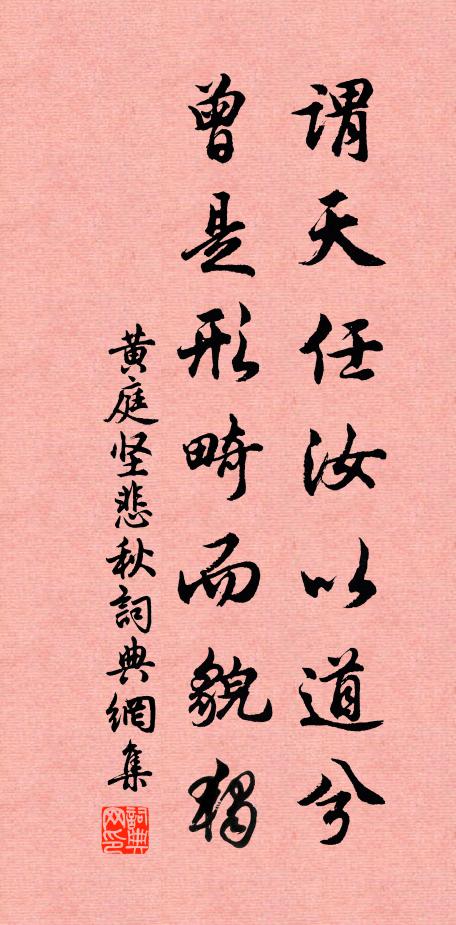 謂天任汝以道兮
曾是形畸而貌獨
黄庭坚悲秋詞典網集
詞典网印